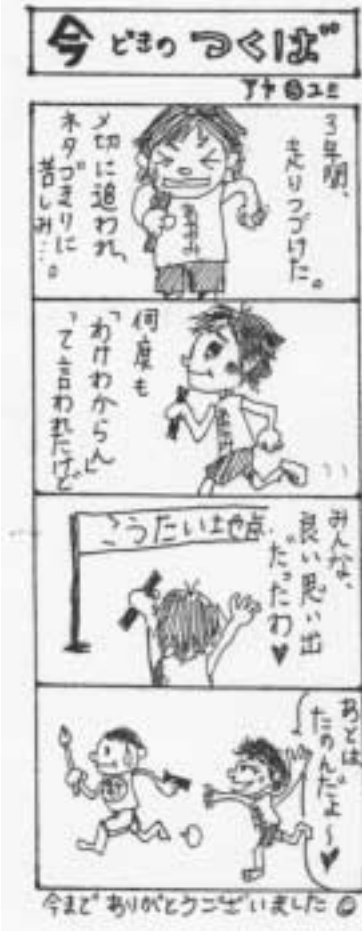 今どきのつくば
アヤ ユミ
3年間、
走りつづけた。
〆切に追われ、
ネタづまりに
苦しみ…。
何度も
「わけわからん」
って言われたけど
みんな、
良い思い出
だったわ♥
こうたい地点
あとは
たのんだよ〜♥
今までありがとうございました